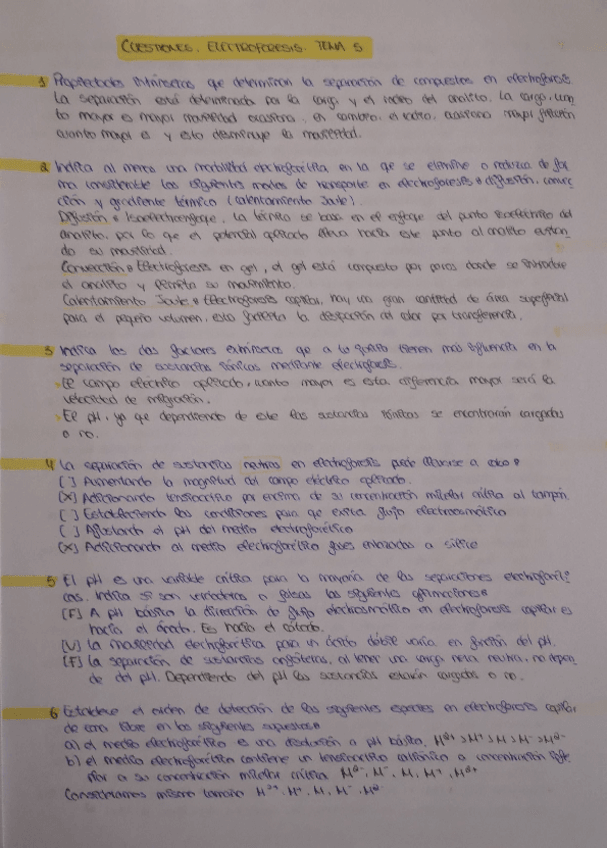 CUESTIONES. ELECTROFORESIS. TEMA 5
1 Propiedades intrínsecas que determinan la separación de compuestos en electroforesis.
La separación está determinada por la carga y el radio del analito. La carga, cuan
to mayor es mayor movilidad ocasiona, en cambio, el radio, ocasiona mayor fricción
cuanto mayor es y esto disminuye la movilidad.
2 Indica al menos una modalidad electroforética en la que se elimine o reduzca de for
ma considerable los siguientes modos de transporte en electroforesis: difusión, convec
ción y gradiente térmico (calentamiento Joule).
Difusión: Isoelectroenfoque. La técnica se basa en el enfoque del punto isoeléctrico del
analito, por lo que el potencial aplicado lleva hacia este punto al analito evitan
do su movilidad.
Convección: Electroforesis en gel, el gel está compuesto por poros donde se introduce
el analito y permite su movimiento.
Calentamiento Joule: Electroforesis capilar, hay una gran cantidad de área superficial
para el pequeño volumen, esto facilita la disipación del calor por transferencia.
3 Indica los dos factores extrínsecos que a tu juicio tienen más influencia en la
separación de sustancias iónicas mediante electroforesis.
- El campo eléctrico aplicado, cuanto mayor es esta diferencia mayor será la
velocidad de migración.
- El pH, ya que dependiendo de este las sustancias iónicas se encontrarán cargadas
o no.
4 La separación de sustancias neutras en electroforesis puede llevarse a cabo:
[ ] Aumentando la magnitud del campo eléctrico aplicado.
[X] Adicionando tensioactivo por encima de su concentración micelar crítica al tampón.
[ ] Estableciendo las condiciones para que exista flujo electroosmótico
[ ] Ajustando el pH del medio electroforético
[X] Adicionando al medio electroforético fases enlazadas a sílice
5 El pH es una variable crítica para la mayoría de las separaciones electroforéti
cas. Indica si son verdaderas o falsas las siguientes afirmaciones:
[F] A pH básico la dirección de flujo electroosmótico en electroforesis capilar es
hacia el ánodo. Es hacia el cátodo.
[V] La movilidad electroforética para un ácido débil varía en función del pH.
[F] La separación de sustancias anfóteras, al tener una carga neta neutra, no depen
de del pH. Dependiendo del pH las sustancias estarán cargadas o no.
6 Establece el orden de detección de las siguientes especies en electroforesis capilar
de zona libre en los siguientes supuestos:
a) el medio electroforético es una disolución a pH básico. M²⁺ > M⁺ > M > M⁻ > M²⁻
b) el medio electroforético contiene un tensioactivo catiónico a concentración
rior a su concentración micelar crítica. M²⁻, M⁻, M, M⁺, M²⁺
Consideramos mismo tamaño M²⁺, M⁺, M, M⁻, M²⁻